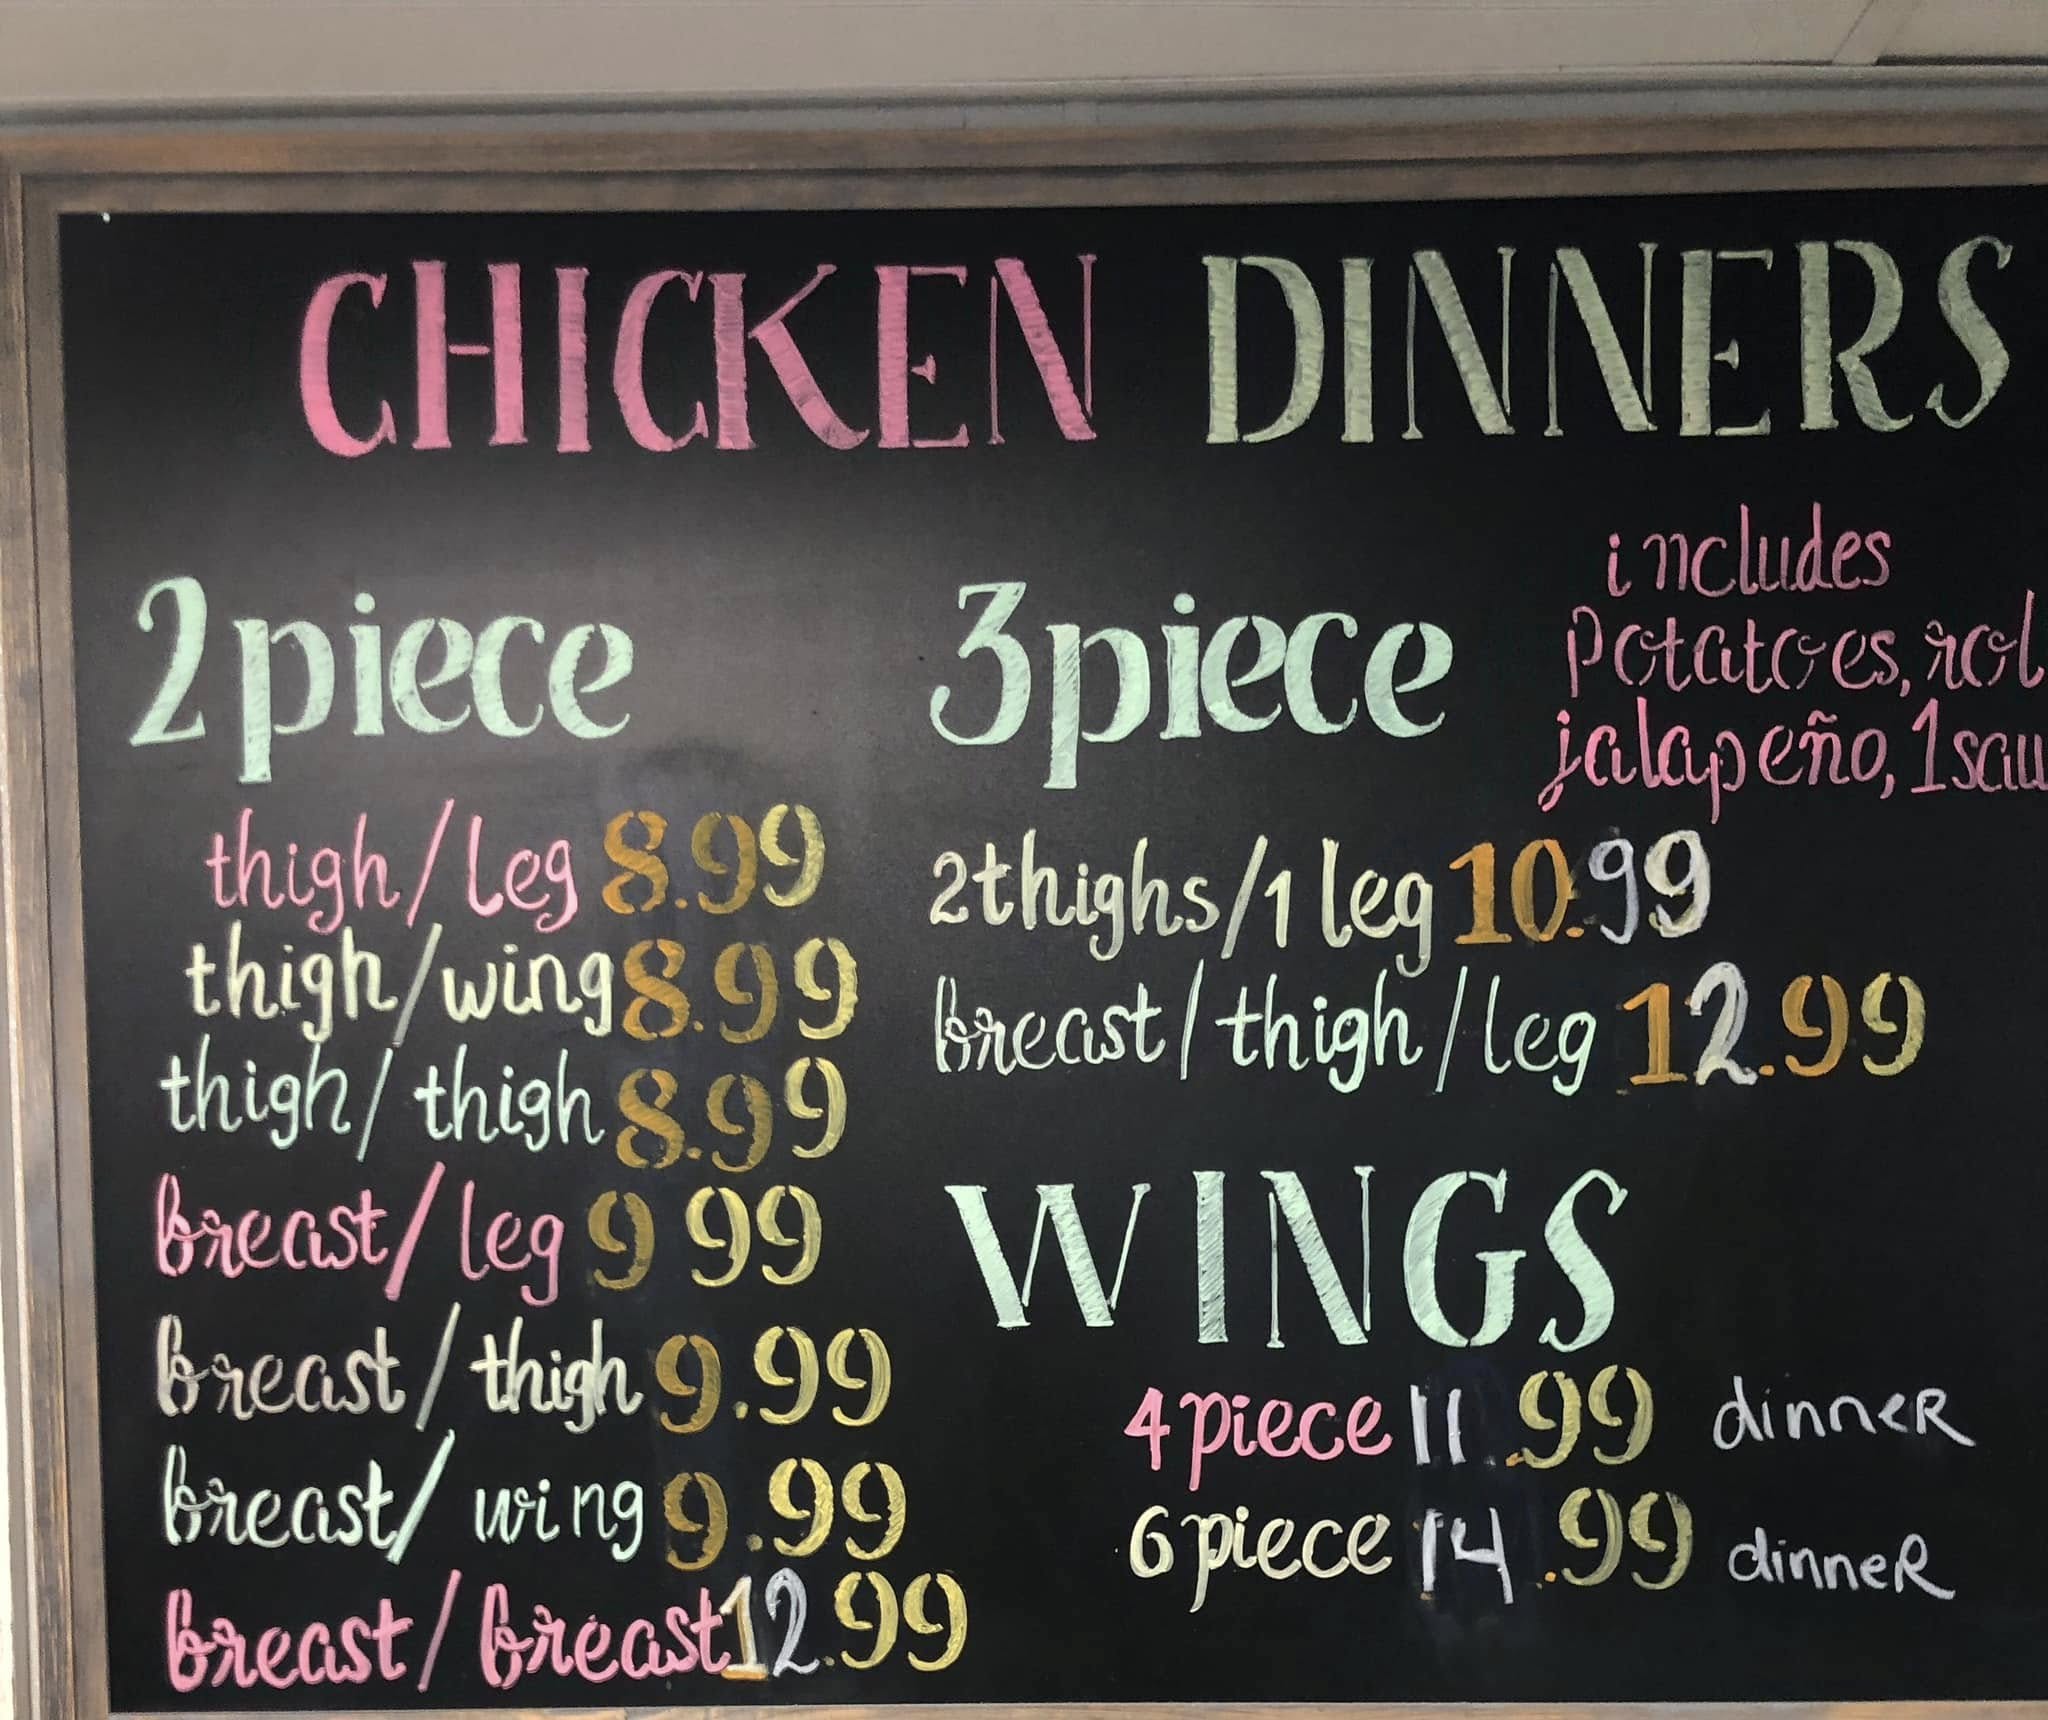 CHICKEN DINNERS
2piece
thigh/leg 8.99
thigh/wing 8.99
thigh/thigh 8.99
breast/leg 9 99
breast/thigh 9.99
breast/wing 9.99
breast/breast 12.99
3piece
includes
potatoes, rol
jalapeño, 1 sau
2 thighs/1 leg 10.99
breast/thigh/leg 12.99
WINGS
4piece 11.99 dinneR
6piece 14.99 dinneR